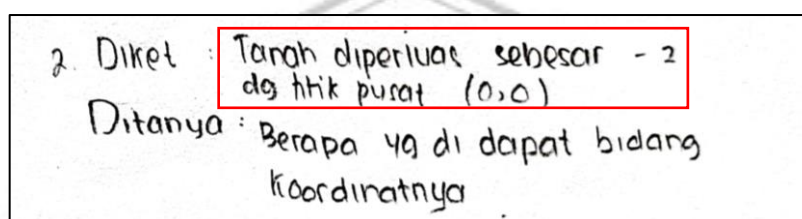 2. Diket : Tanah diperluas sebesar - 2
dg titik pusat (0,0)
Ditanya : Berapa yg di dapat bidang
Koordinatnya